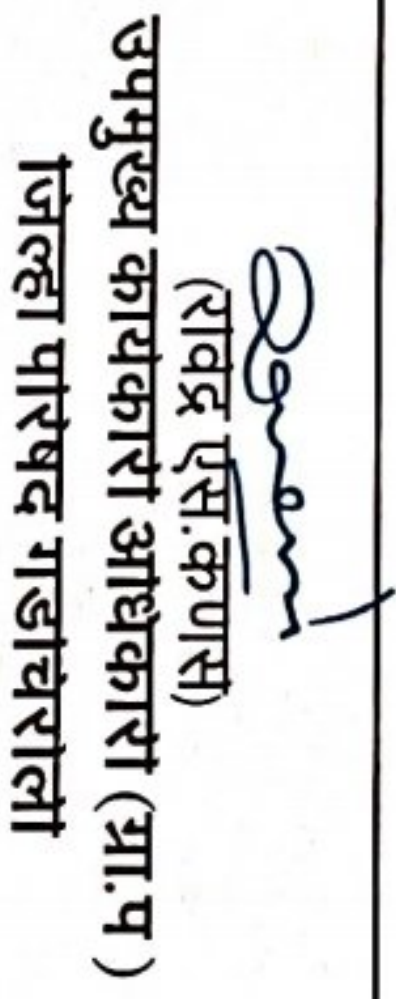 (रविंद्र एस.कणसे)
उपमुख्य कार्यकारी अधिकारी (ग्रा.प )
जिल्हा परिषद गडचिरोली